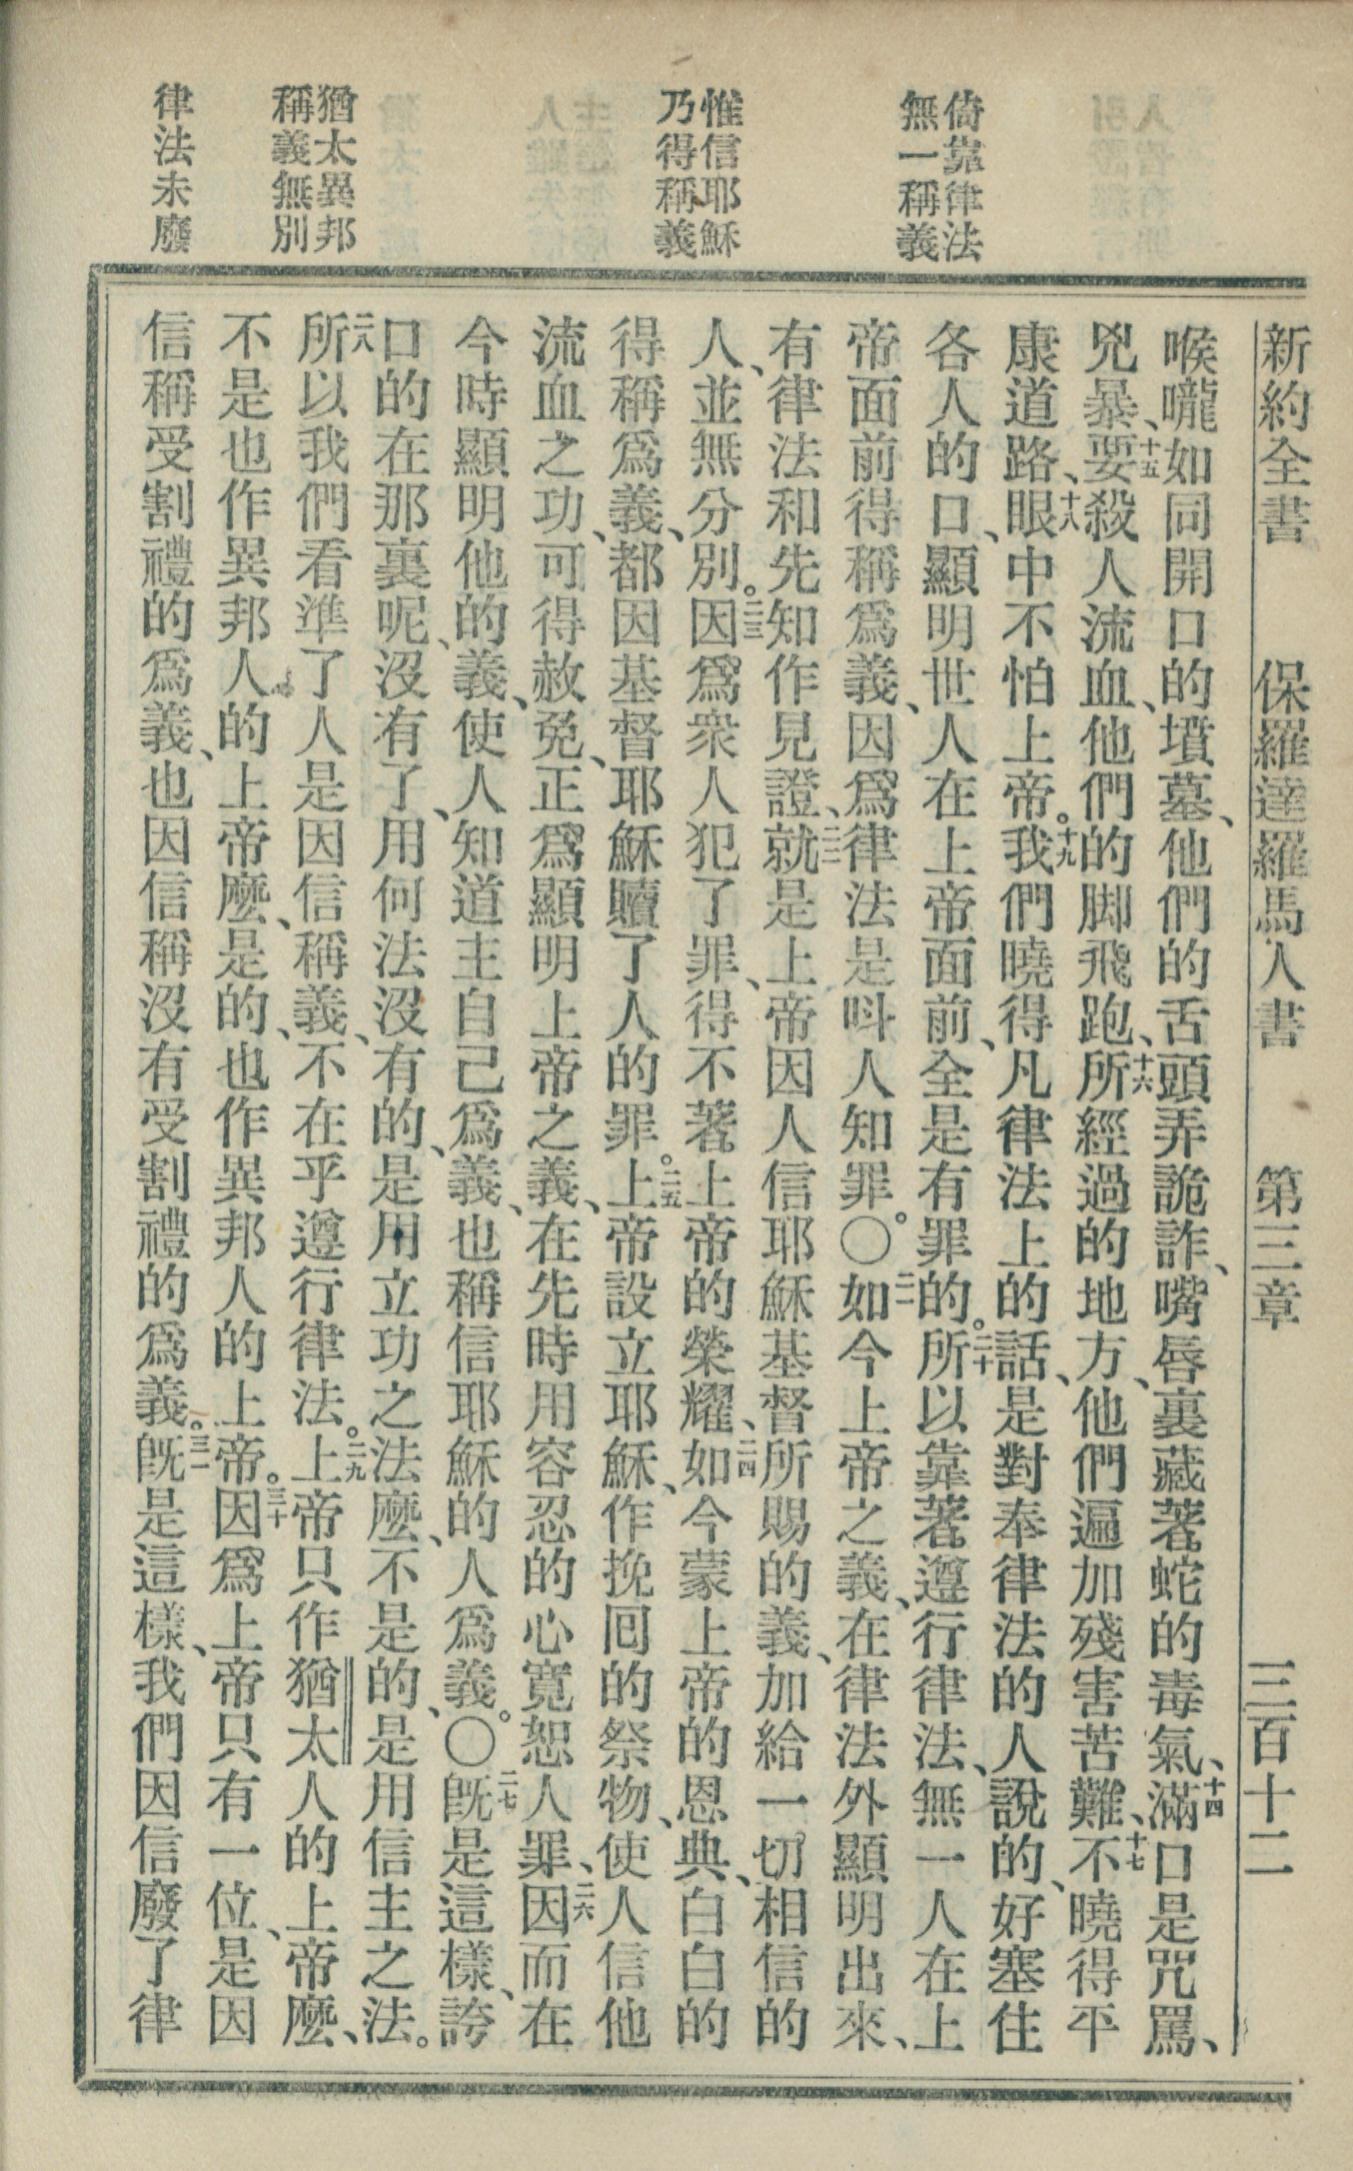 新約全書　保羅達羅馬人書　第三章　三百十二
倚靠律法
無一稱義
惟信耶穌
乃得稱義
猶太異邦
稱義無別
律法未廢
喉嚨如同開口的墳墓、他們的舌頭弄詭詐、嘴唇裏藏著蛇的毒氣、十四滿口是咒罵、
兇暴、十五要殺人流血、他們的脚飛跑、十六所經過的地方、他們遍加殘害苦難、十七不曉得平
康道路、十八眼中不怕上帝。十九我們曉得凡律法上的話、是對奉律法的人說的、好塞住
各人的口、顯明世人在上帝面前、全是有罪的。二十所以靠著遵行律法、無一人在上
帝面前得稱爲義、因爲律法是呌人知罪。〇二一如今上帝之義、在律法外顯明出來、
有律法和先知作見證、二二就是上帝因人信耶穌基督所賜的義、加給一切相信的
人、並無分別。二三因爲衆人犯了罪、得不著上帝的榮耀、二四如今蒙上帝的恩典、白白的
得稱爲義、都因基督耶穌贖了人的罪。二五上帝設立耶穌、作挽囘的祭物、使人信他
流血之功、可得赦免、正爲顯明上帝之義、在先時用容忍的心寬恕人罪、二六因而在
今時顯明他的義、使人知道主自己爲義、也稱信耶穌的人爲義。〇二七旣是這樣、誇
口的在那裏呢、沒有了、用何法沒有的、是用立功之法麼、不是的、是用信主之法。
二八所以我們看準了人是因信稱義、不在乎遵行律法。二九上帝只作猶太人的上帝麼、
不是也作異邦人的上帝麼、是的、也作異邦人的上帝。三十因爲上帝只有一位、是因
信稱受割禮的爲義、也因信稱沒有受割禮的爲義。三一旣是這樣、我們因信廢了律